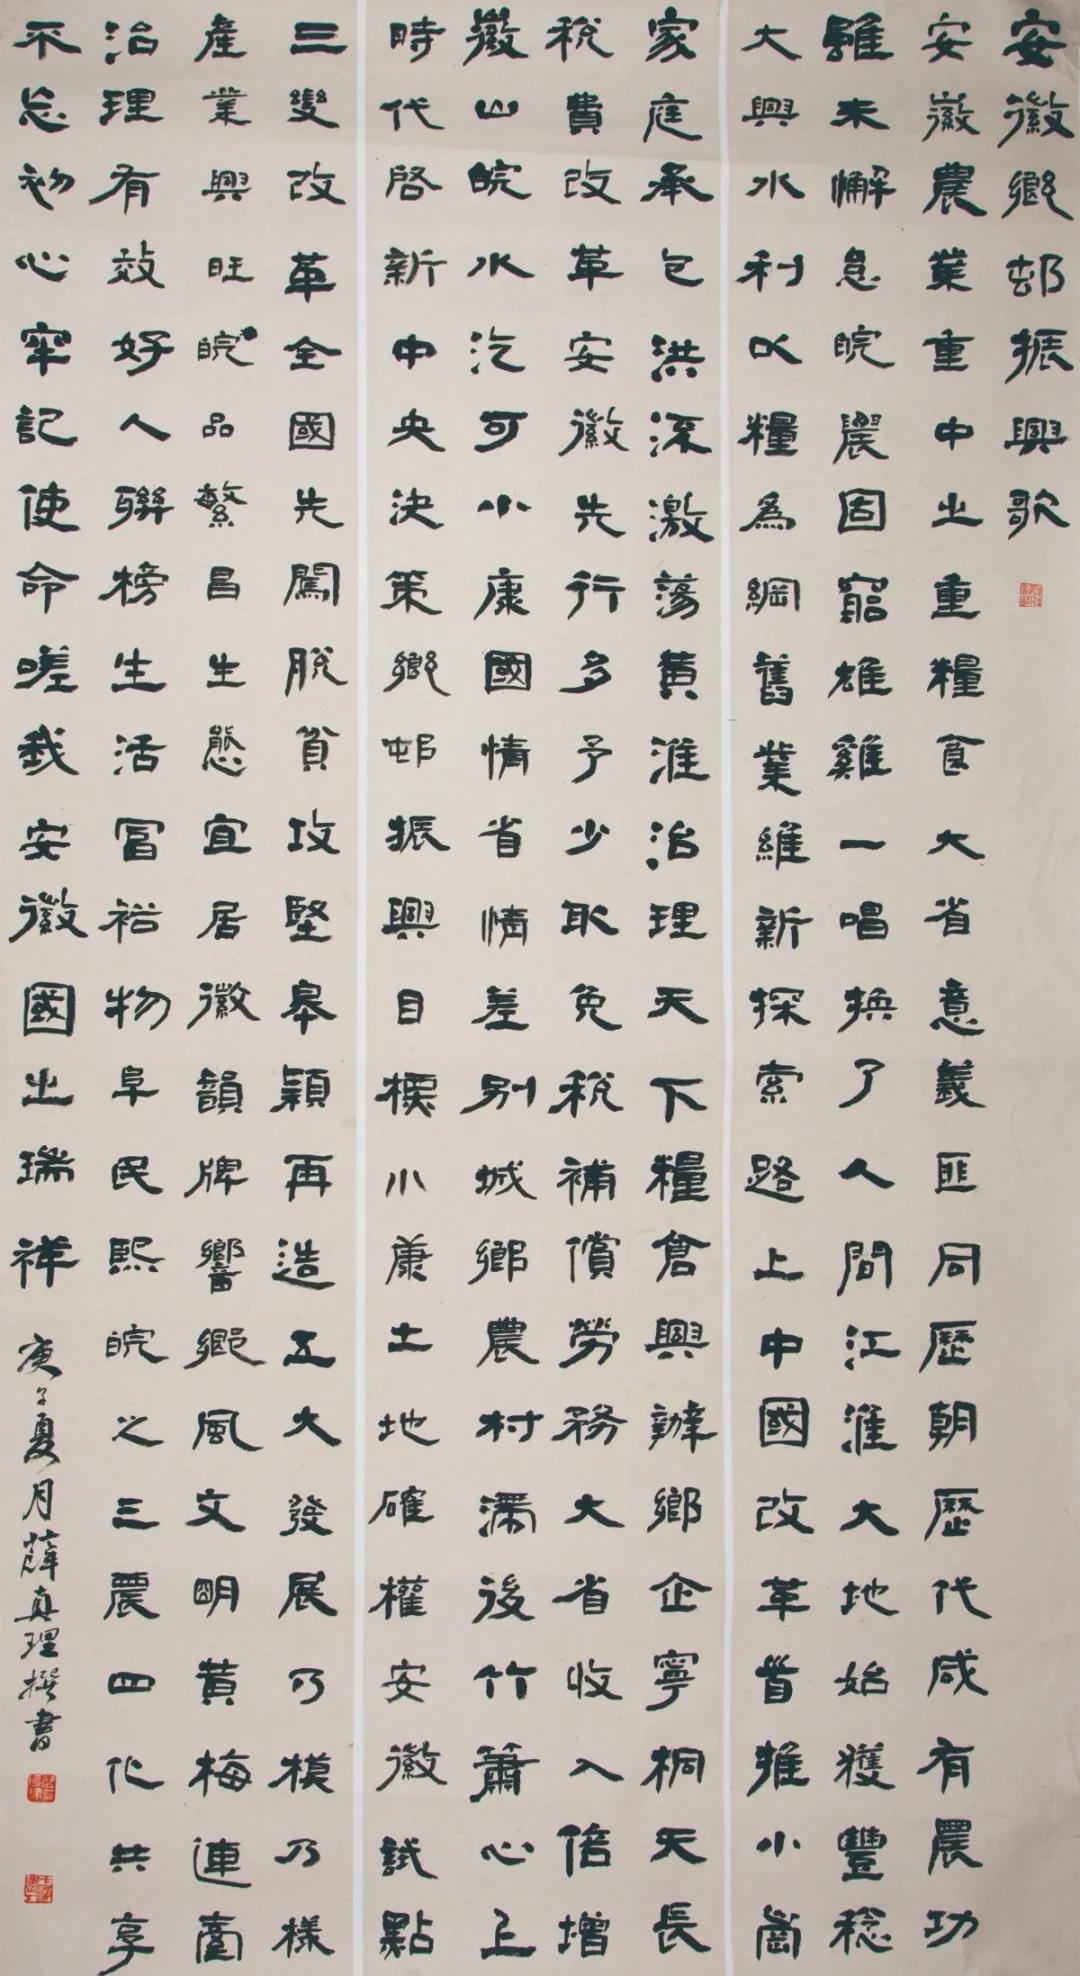 安徽鄉邨振興歌
安徽農業重中之重糧食大省意義匪同歷朝歷代咸有農功
雖未懈怠皖農固窮雄雞一唱换了人間江淮大地始獲豐稔
大興水利以糧為綱舊業維新探索路上中國改革首推小崗
家庭承包洪流激蕩黄淮治理天下糧倉興辦鄉企寧桐天長
稅費改革安徽先行多予少取免稅補償勞務大省收入倍增
徽山皖水汔可小康國情省情差别城鄉農村滯後竹簫心上
時代啓新中央決策鄉邨振興目標小康土地確權安徽試點
三變改革全國先闖脫貧攻堅阜潁再造五大發展乃模乃樣
產業興旺皖品繁昌生態宜居徽韻牌響鄉風文明黄梅連臺
治理有效好人聯榜生活富裕物阜民熙皖之三農四化共享
不忘初心牢記使命嗟我安徽國之瑞祥
庚子夏月薛真理撰書